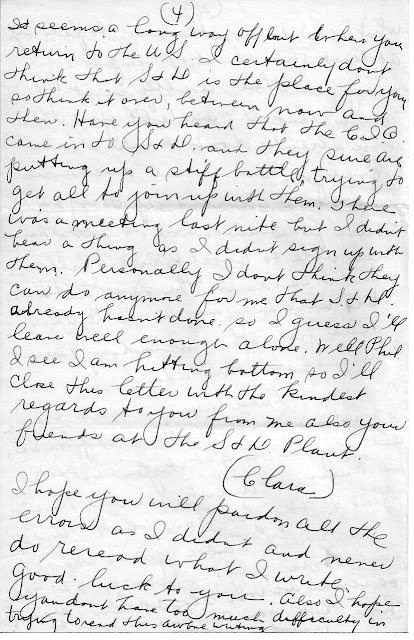 (4)
It seems a long way off but when you
return to the U.S. I certainly dont
think that S & D is the place for you
so think it over, between now and
then. Have you heard that the C.I.O.
came in to S & D. and they sure are
putting up a stiff battle trying to
get all to join up with them. There
was a meeting last nite but I didn't
hear a thing as I didnt sign up with
them. Personally I dont think they
can do anymore for me that S & D.
already hasn't done. so I guess I'll
leave well enough alone. Well Phil
I see I am hitting bottom, so I'll
close this letter with the kindest
regards to you from me also your
friends at the S & D. Plant.
(Clara)
I hope you will pardon all the
errors as I didnt and never
do reread what I write.
Good luck to you. Also I hope
you dont have too much difficulty in
trying to read this awful writing